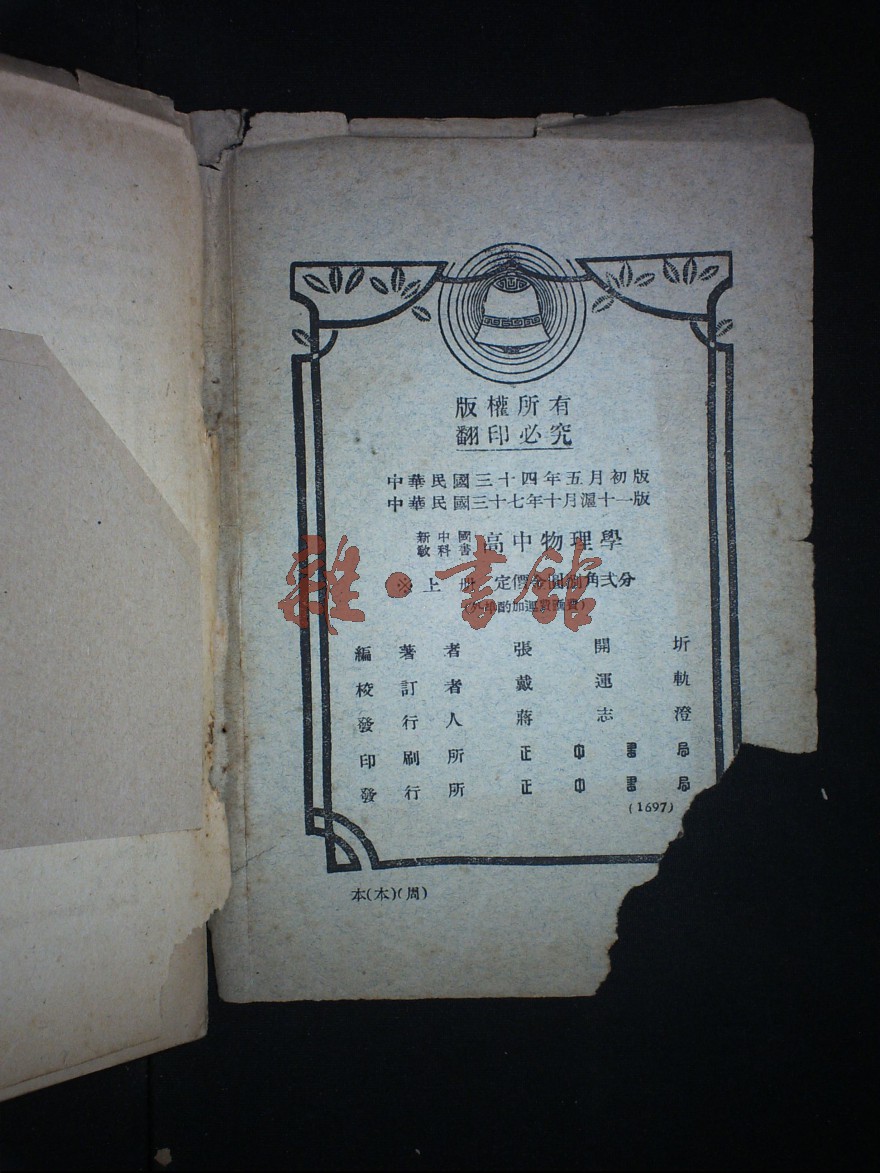 版權所有
翻印必究
中華民國三十四年五月初版
中華民國三十七年十月滬十一版
新中國教科書 高中物理學
※上册 定價金圓 角弍分
(外埠酌加運費滙費)
編著者 張開圻
校訂者 戴運軌
發行人 蔣志澄
印刷所 正中書局
發行所 正中書局
(1697)
本(本)(周)
雜·書館